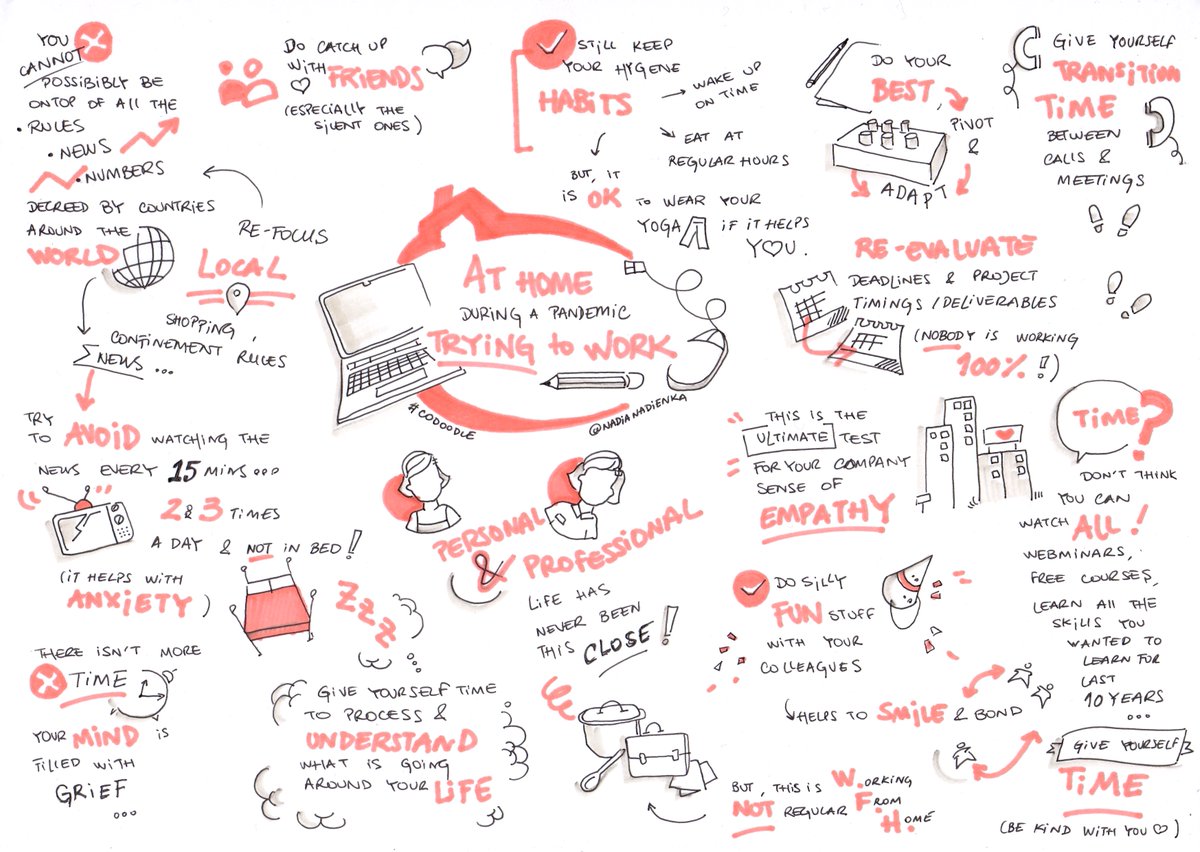 YOU
CANNOT
POSSIBIBLY BE
ONTOP OF ALL THE
• RULES
• NEWS
• NUMBERS
DECREED BY COUNTRIES
AROUND THE
WORLD
RE-FOCUS
LOCAL
SHOPPING,
CONFINEMENT RULES
NEWS ...
TRY
TO AVOID WATCHING THE
NEWS EVERY 15 MINS...
2 & 3 TIMES
A DAY & NOT IN BED!
(IT HELPS WITH
ANXIETY)
ZZZ
THERE ISN'T MORE
TIME
YOUR MIND IS
FILLED WITH
GRIEF
...
DO CATCH UP
WITH FRIENDS
(ESPECIALLY THE
SILENT ONES)
STILL KEEP
YOUR HYGENE
HABITS
→ WAKE UP
ON TIME
EAT AT
REGULAR HOURS
BUT, IT
IS OK TO WEAR YOUR
YOGA IF IT HELPS
Y♡U.
AT HOME
DURING A PANDEMIC
TRYING to WORK
#CODOODLE
@NADIANADIENKA
PERSONAL
&
PROFESSIONAL
LIFE HAS
NEVER BEEN
THIS CLOSE!
GIVE YOURSELF TIME
TO PROCESS &
UNDERSTAND
WHAT IS GOING
AROUND YOUR LIFE
DO YOUR
BEST,
PIVOT
&
ADAPT
GIVE YOURSELF
TRANSITION
TIME
BETWEEN
CALLS &
MEETINGS
RE-EVALUATE
DEADLINES & PROJECT
TIMINGS/DELIVERABLES
(NOBODY IS WORKING
100% !!)
THIS IS THE
ULTIMATE TEST
FOR YOUR COMPANY
SENSE OF
EMPATHY
TIME?
DON'T THINK
YOU CAN
WATCH ALL!
WEBMINARS,
FREE COURSES,
LEARN ALL THE
SKILLS YOU
WANTED TO
LEARN FOR
LAST
10 YEARS
...
GIVE YOURSELF
TIME
(BE KIND WITH YOU ♡)
DO SILLY
FUN STUFF
WITH YOUR
COLLEAGUES
HELPS TO SMILE & BOND
BUT, THIS IS W.ORKING
NOT REGULAR F.ROM
H.OME